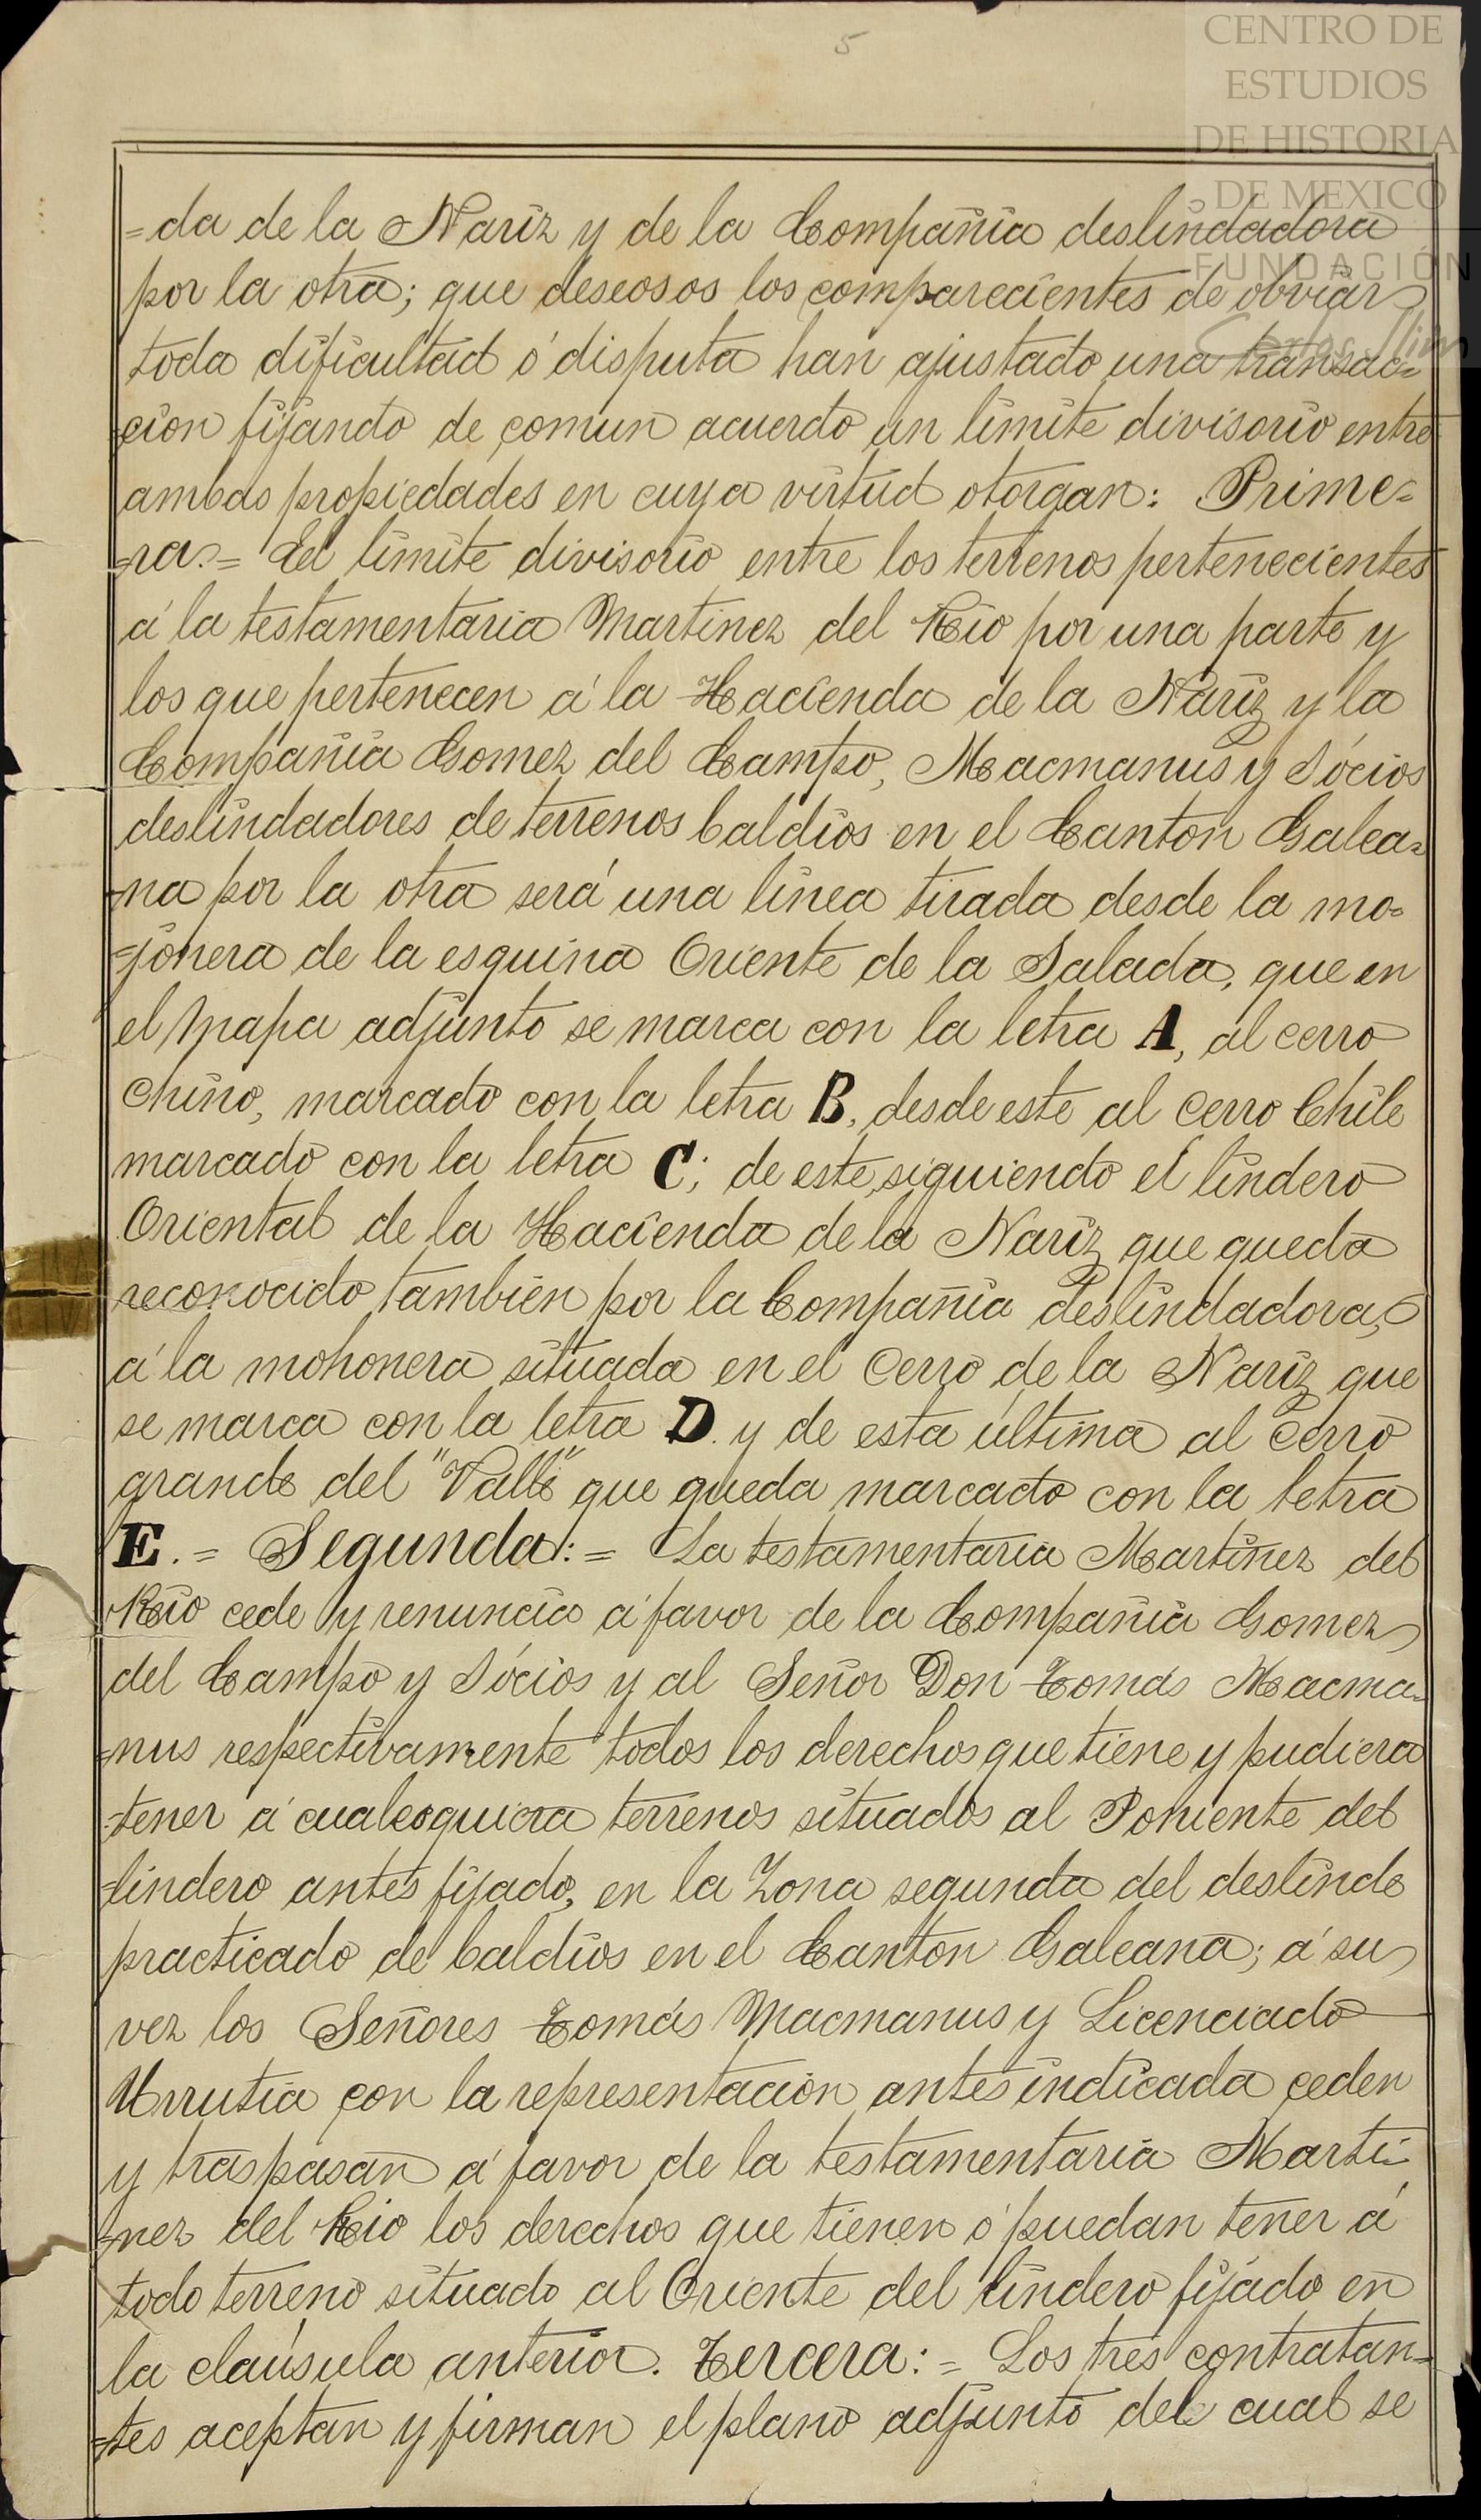 5
CENTRO DE
ESTUDIOS
DE HISTORIA
DE MEXICO
FUNDACIÓN
Carlos Slim
=da de la Nariz y de la Compañia deslindadora
por la otra; que deseosos los comparecientes de obviar
toda dificultad ó disputa han ajustado una transac=
=cion fijando de comun acuerdo un limite divisorio entre
ambas propiedades en cuya virtud otorgan: Prime=
=ra.= El limite divisorio entre los terrenos pertenecientes
á la testamentaria Martinez del Rio por una parte y
los que pertenecen á la Hacienda de la Nariz y la
Compañia Gomez del Campo, Macmanus y Sócios
deslindadores de terrenos baldios en el Canton Galea=
=na por la otra será una linea tirada desde la mo=
=jonera de la esquina Oriente de la Salada, que en
el mapa adjunto se marca con la letra A, al cerro
Chino, marcado con la letra B, desde este al cerro Chile
marcado con la letra C; de este, siguiendo el lindero
Oriental de la Hacienda de la Nariz que queda
reconocido tambien por la Compañia deslindadora,
á la mohonera situada en el Cerro de la Nariz que
se marca con la letra D. y de esta última al Cerro
grande del "Valle" que queda marcado con la letra
E.= Segunda:= La testamentaria Martinez del
Rio cede y renuncia á favor de la Compañia Gomez
del Campo y Sócios y al Señor Don Tomas Macma=
=nus respectivamente todos los derechos que tiene y pudiera
=tener á cualesquiera terrenos situados al Poniente del
=lindero antes fijado, en la Zona segunda del deslinde
practicado de baldios en el Canton Galeana; á su
vez los Señores Tomás Macmanus y Licenciado
Urrutia con la representacion antes indicada ceden
y traspasan á favor de la testamentaria Marti=
=nez del Rio los derechos que tienen ó puedan tener á
todo terreno situado al Oriente del lindero fijado en
la claúsula anterior. Tercera:= Los tres contratan=
=tes aceptan y firman el plano adjunto del cual se